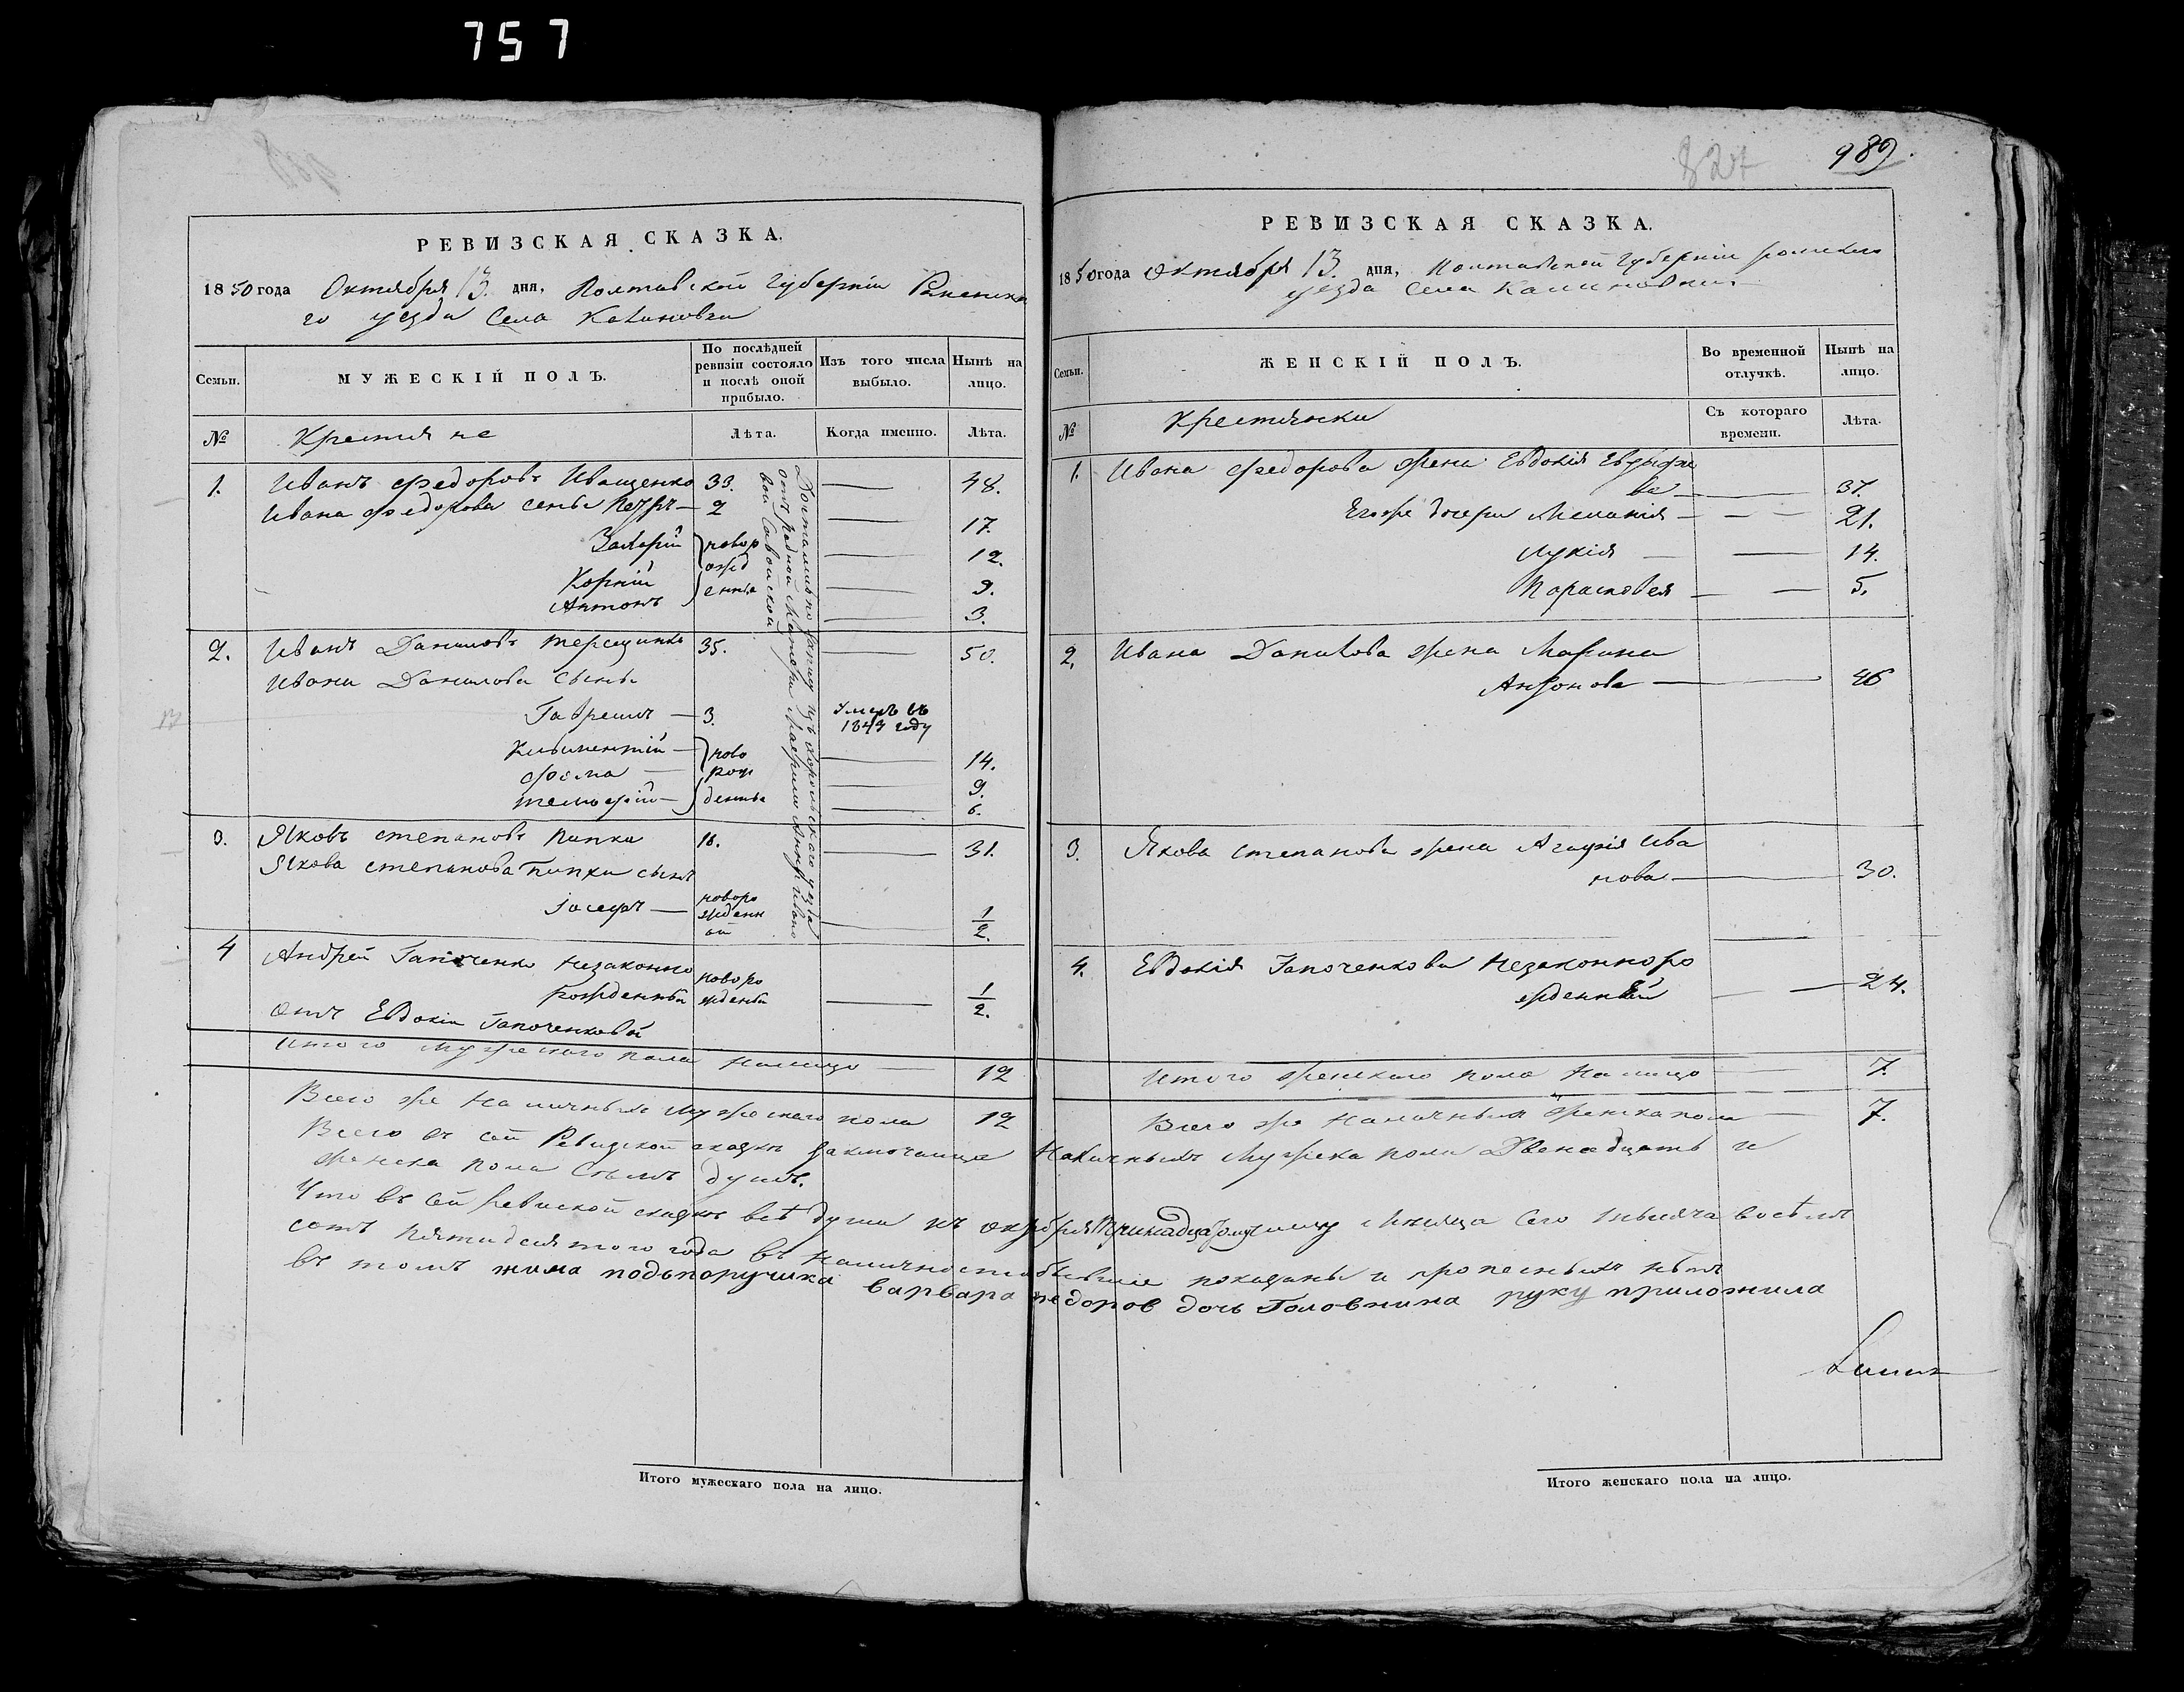 757
989.
РЕВИЗСКАЯ СКАЗКА.
1850 года Октября 13. дня, Полтавской Губернiи Роменска
го уезда Села Калиновки
Семьи.
МУЖЕСКIЙ ПОЛЪ.
По послѣдней ревизiи состояло и послѣ оной прибыло.
Изъ того числа выбыло.
Нынѣ на лицо.
№
Крестьяне
Лѣта.
Когда именно.
Лѣта.
1. Иванъ Федоровъ Иващенко 33. — 48.
Ивана Федорова сыны Петръ — 2 — 17.
Захарiй новор — 12.
ожд
Корнiй енные — 9.
Антонъ — 3.
Достались по разделу изъ Хорольского уезда
отъ родной Матери Маерши Анны Ивано
вой Савойской
2. Иванъ Даниловъ Терещенко 35. — 50.
Ивана Данилова Сыны
Гаврiилъ — 3. Умеръ въ
1843 году
Климентiй — ново — 14.
Фома — рож — 9.
Тимофiй — денные — 6.
3. Яковъ Степановъ Папка 16. — 31.
Якова Степанова Папки сынъ
Iосифъ — новоро
жденн
ый — 1/2.
4 Андрей Гапоченко Незаконно новоро
рожденный жденый — 1/2.
Отъ Евдокiи Гапоченковой
Итого Мужескаго пола налицо — 12
Всего же Наличныхъ Мужескаго пола 12
РЕВИЗСКАЯ СКАЗКА.
1850 года Октября 13. дня, Полтавской Губернiи роменского
уезда Села Калиновки
Семьи.
ЖЕНСКIЙ ПОЛЪ.
Во временной отлучкѣ.
Нынѣ на лицо.
№
Крестьянки
Съ котораго времени.
Лѣта.
1. Ивана Федорова жена Евдокiя Евдокимо
ва — 37.
Егоже дочери Меланiя — 21.
Лукiя — 14.
Парасковея — 5.
2. Ивана Данилова жена Марина
Антонова — 46
3. Якова Степанова жена Агафiя Ива
нова — 30.
4. Евдокiя Гапоченкова Незаконноро
жденный — 24.
Итого женскаго пола На лицо — 7.
Всего же Наличныхъ женска пола — 7.
Всего въ сей Ревизской сказкѣ заключающе Наличныхъ Мужска пола Двенадцать и
Женска пола Семъ душъ.
Что въ сей ревиской сказкѣ всѣ души къ октября Тринадцатому числу Мѣсяца Сего тысяча восѣмъ
сотъ пятидесятого года въ наличности бывшiе показаны и пропесныхъ нѣтъ
въ томъ жина подьпоручика варвара Федоров дочь Головнина руку приложила
Итого мужескаго пола на лицо.
Итого женскаго пола на лицо.